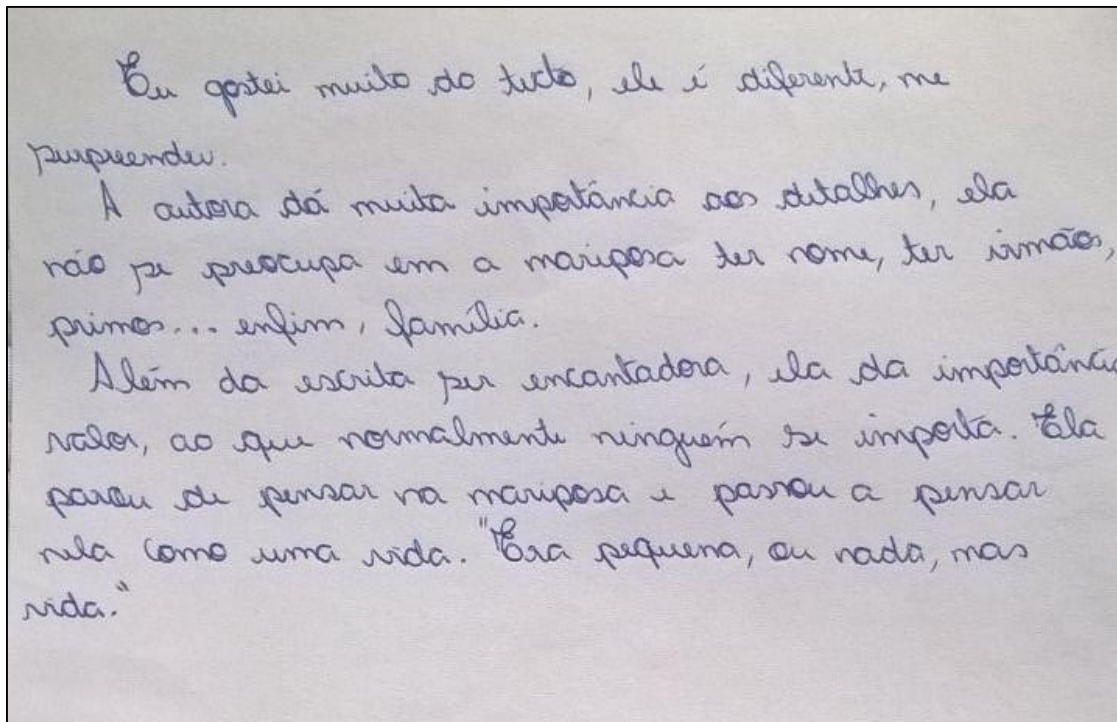 Eu gostei muito do texto, ele é diferente, me
surpreendeu.
A autora dá muita importância aos detalhes, ela
não se preocupa em a mariposa ter nome, ter irmãos,
primos... enfim, família.
Além da escrita ser encantadora, ela da importância
valor, ao que normalmente ninguém se importa. Ela
parou de pensar na mariposa e passou a pensar
nela como uma vida. "Era pequena, ou nada, mas
vida."